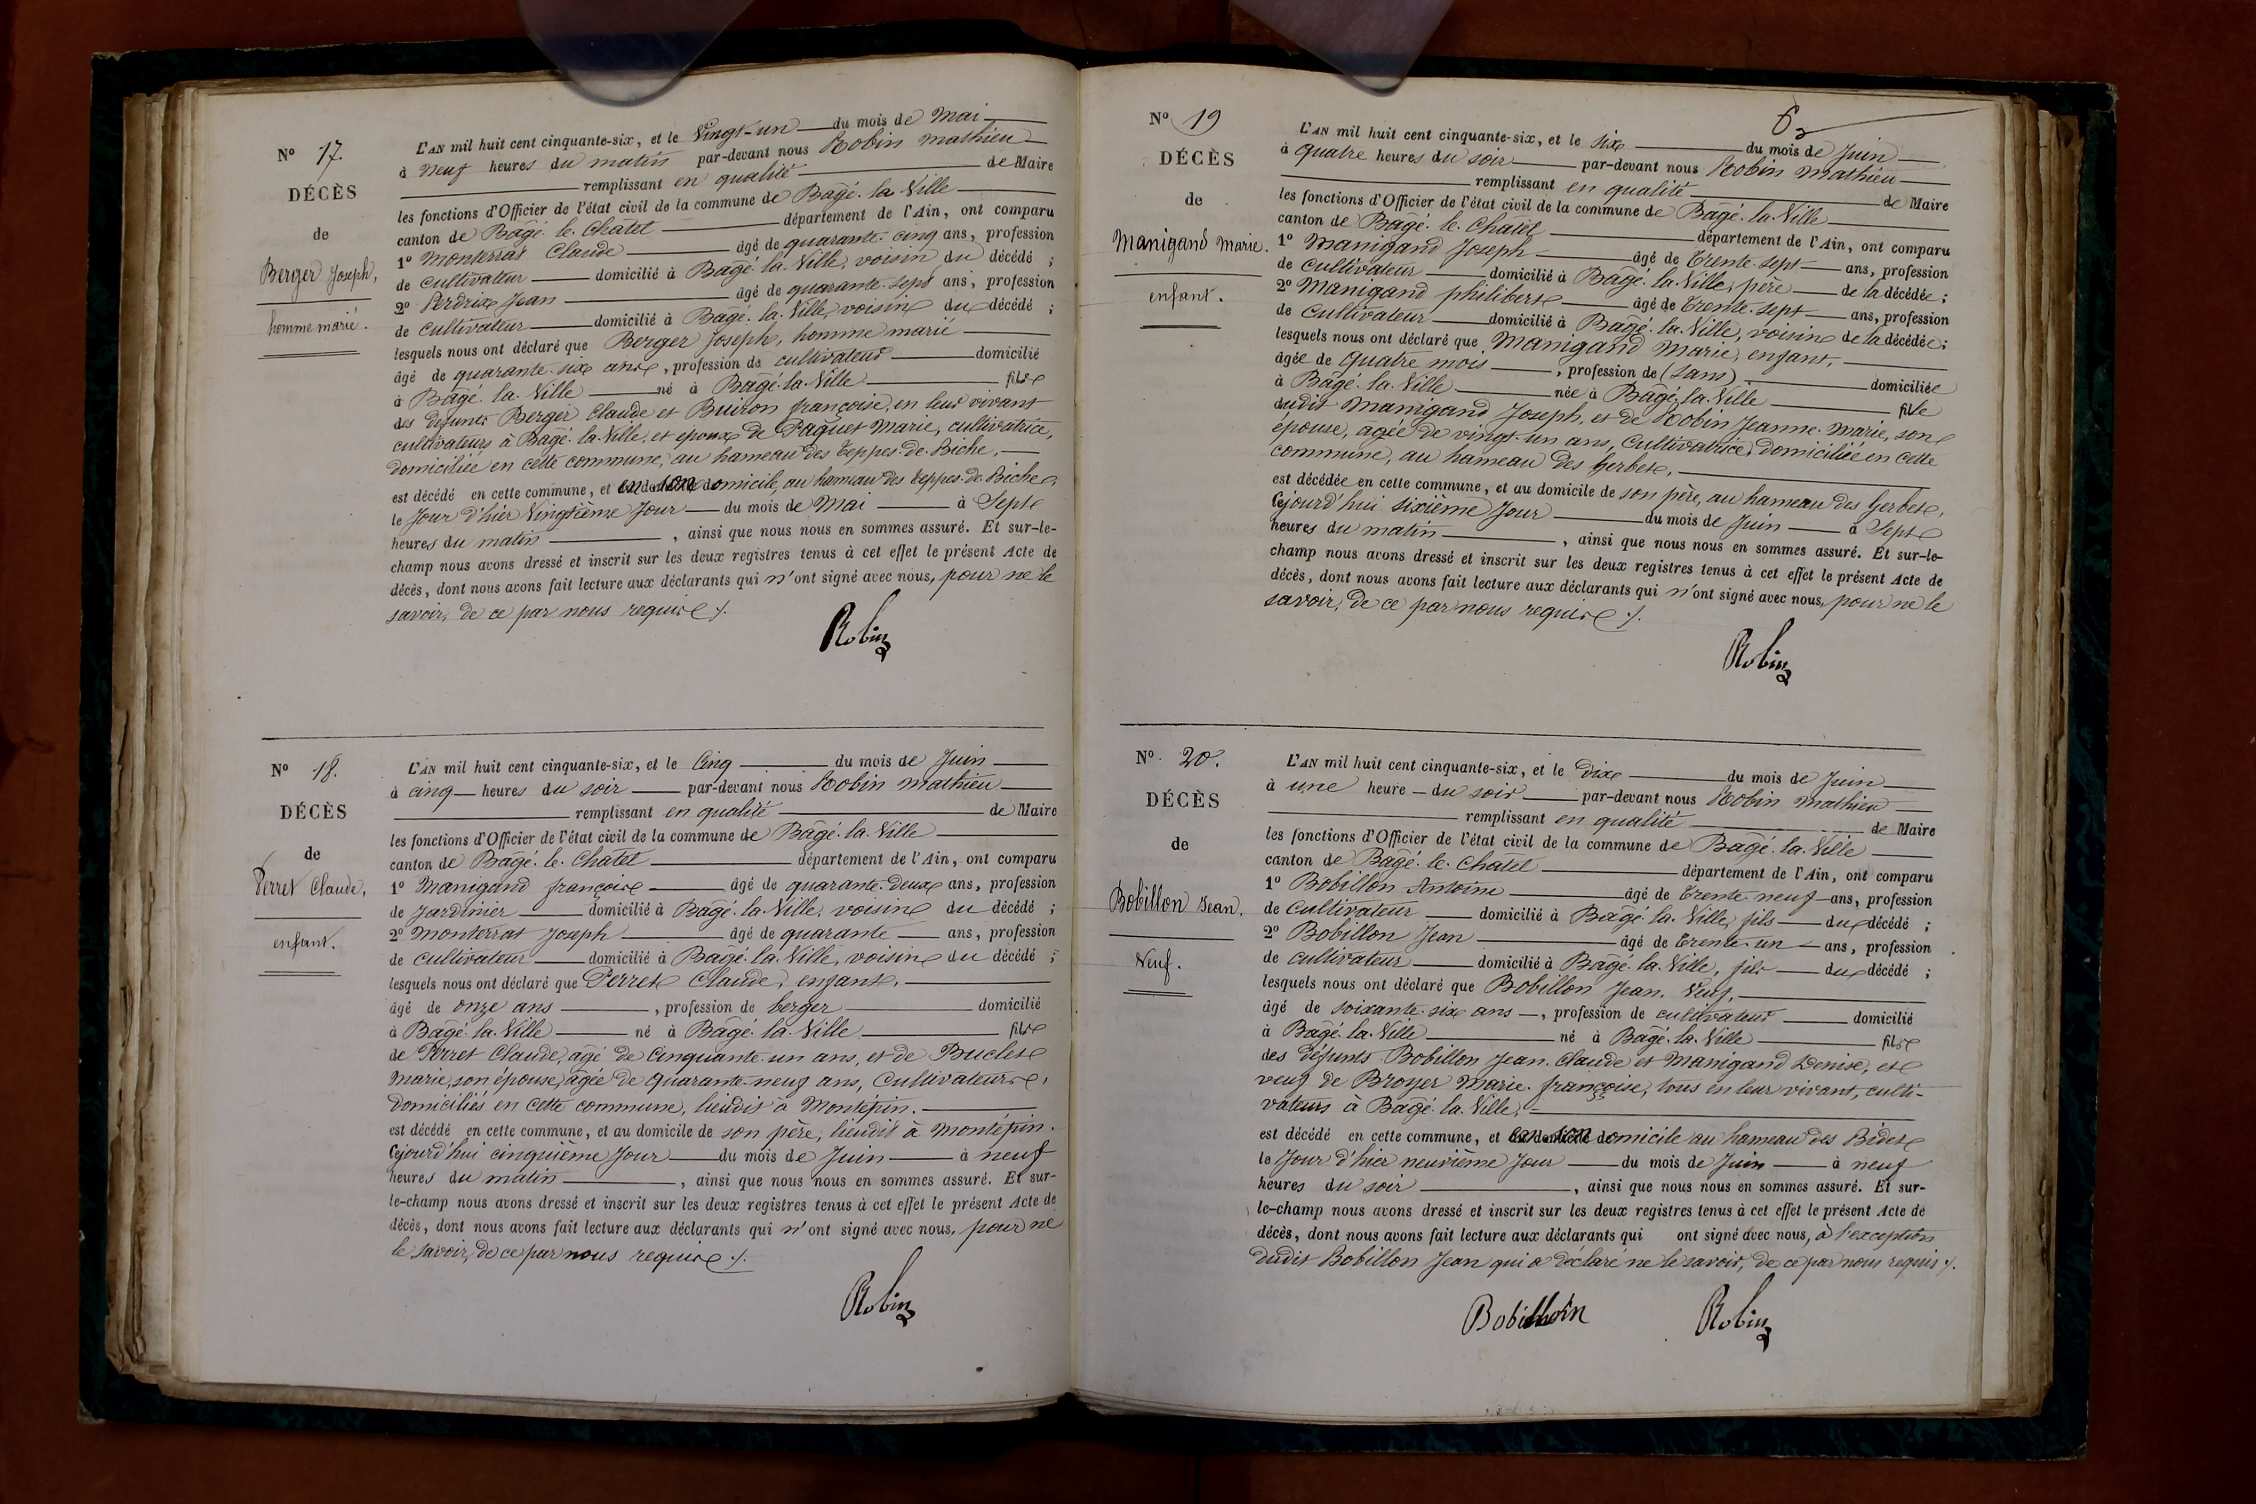 N° 17.
DÉCÈS
de
Berger Joseph,
homme marié.
L'AN mil huit cent cinquante-six, et le Vingt-un du mois de Mai
à neuf heures du matin par-devant nous Robin Mathieu
remplissant en qualité de Maire
les fonctions d'Officier de l'état civil de la commune de Bagé-la-Ville
canton de Bagé-le-Chatel département de l'Ain, ont comparu
1° Monterrat Claude âgé de quarante-cinq ans, profession
de cultivateur domicilié à Bagé-la-Ville, voisin du décédé ;
2° Perdrix Jean âgé de quarante-sept ans, profession
de cultivateur domicilié à Bagé-la-Ville, voisin du décédé ;
lesquels nous ont déclaré que Berger Joseph, homme marié
âgé de quarante-six ans, profession de cultivateur domicilié
à Bagé-la-Ville né à Bagé-la-Ville fils
des défunts Berger Claude et Buiron françoise, en leur vivant
cultivateurs à Bagé-la-Ville, et époux de Paquet Marie, cultivatrice,
domiciliée en cette commune, au hameau des Teppes-de-Biche,
est décédé en cette commune, et en son domicile, au hameau des Teppes-de-Biche,
le Jour d'hier Vingtième Jour du mois de Mai à Sept
heures du matin , ainsi que nous nous en sommes assuré. Et sur-le-
champ nous avons dressé et inscrit sur les deux registres tenus à cet effet le présent Acte de
décès, dont nous avons fait lecture aux déclarants qui n'ont signé avec nous, pour ne le
savoir, de ce par nous requis ./.
Robin
N° 18.
DÉCÈS
de
Perret Claude,
enfant.
L'AN mil huit cent cinquante-six, et le Cinq du mois de Juin
à cinq heures du soir par-devant nous Robin Mathieu
remplissant en qualité de Maire
les fonctions d'Officier de l'état civil de la commune de Bagé-la-Ville
canton de Bagé-le-Chatel département de l'Ain, ont comparu
1° Manigand françois âgé de quarante-deux ans, profession
de Jardinier domicilié à Bagé-la-Ville, voisin du décédé ;
2° Monterrat Joseph âgé de quarante ans, profession
de cultivateur domicilié à Bagé-la-Ville, voisin du décédé ;
lesquels nous ont déclaré que Perret Claude, enfant,
âgé de onze ans , profession de berger domicilié
à Bagé-la-Ville né à Bagé-la-Ville fils
de Perret Claude, âgé de cinquante-un ans, et de Buclet
Marie, son épouse, âgée de quarante-neuf ans, Cultivateurs,
domiciliés en cette commune, lieudit à Montépin.
est décédé en cette commune, et au domicile de son père, lieudit à Montépin.
Cejourd'hui cinquième Jour du mois de Juin à neuf
heures du matin , ainsi que nous nous en sommes assuré. Et sur-
le-champ nous avons dressé et inscrit sur les deux registres tenus à cet effet le présent Acte de
décès, dont nous avons fait lecture aux déclarants qui n'ont signé avec nous, pour ne
le savoir, de ce par nous requis ./.
Robin
6
N° 19
DÉCÈS
de
Manigand Marie.
enfant.
L'AN mil huit cent cinquante-six, et le six du mois de Juin
à quatre heures du soir par-devant nous Robin Mathieu
remplissant en qualité de Maire
les fonctions d'Officier de l'état civil de la commune de Bagé-la-Ville
canton de Bagé-le-Chatel département de l'Ain, ont comparu
1° Manigand Joseph âgé de Trente-sept ans, profession
de cultivateur domicilié à Bagé-la-Ville, père de la décédée ;
2° Manigand philibert âgé de Trente-sept ans, profession
de Cultivateur domicilié à Bagé-la-Ville, voisin de la décédée ;
lesquels nous ont déclaré que Manigand Marie, enfant,
âgée de quatre mois , profession de (sans) domiciliée
à Bagé-la-Ville née à Bagé-la-Ville fille
dudit Manigand Joseph, et de Robin Jeanne-Marie, son
épouse, agée de vingt-un ans, Cultivatrice, domiciliée en cette
commune, au hameau des Gerbes,
est décédée en cette commune, et au domicile de son père, au hameau des Gerbes,
Cejourd'hui sixième Jour du mois de Juin à Sept
heures du matin , ainsi que nous nous en sommes assuré. Et sur-le-
champ nous avons dressé et inscrit sur les deux registres tenus à cet effet le présent Acte de
décès, dont nous avons fait lecture aux déclarants qui n'ont signé avec nous, pour ne le
savoir, de ce par nous requis ./.
Robin
N° 20.
DÉCÈS
de
Bobillon Jean.
Veuf.
L'AN mil huit cent cinquante-six, et le Dix du mois de Juin
à une heure du soir par-devant nous Robin Mathieu
remplissant en qualité de Maire
les fonctions d'Officier de l'état civil de la commune de Bagé-la-Ville
canton de Bagé-le-Chatel département de l'Ain, ont comparu
1° Bobillon Antoine âgé de Trente-neuf ans, profession
de cultivateur domicilié à Bagé-la-Ville, fils du décédé ;
2° Bobillon Jean âgé de Trente-un ans, profession
de cultivateur domicilié à Bagé-la-Ville, fils du décédé ;
lesquels nous ont déclaré que Bobillon Jean, Veuf,
âgé de soixante-six ans , profession de cultivateur domicilié
à Bagé-la-Ville né à Bagé-la-Ville fils
des défunts Bobillon Jean-Claude et Manigand Denise, et
veuf de Broyer Marie-françoise, tous en leur vivant, culti-
vateurs à Bagé-la-Ville,
est décédé en cette commune, et en son domicile au hameau des Bidets
le Jour d'hier neuvième Jour du mois de Juin à neuf
heures du soir , ainsi que nous nous en sommes assuré. Et sur-
le-champ nous avons dressé et inscrit sur les deux registres tenus à cet effet le présent Acte de
décès, dont nous avons fait lecture aux déclarants qui ont signé avec nous, à l'exception
dudit Bobillon Jean qui a déclaré ne le savoir, de ce par nous requis ./.
Bobillon Robin